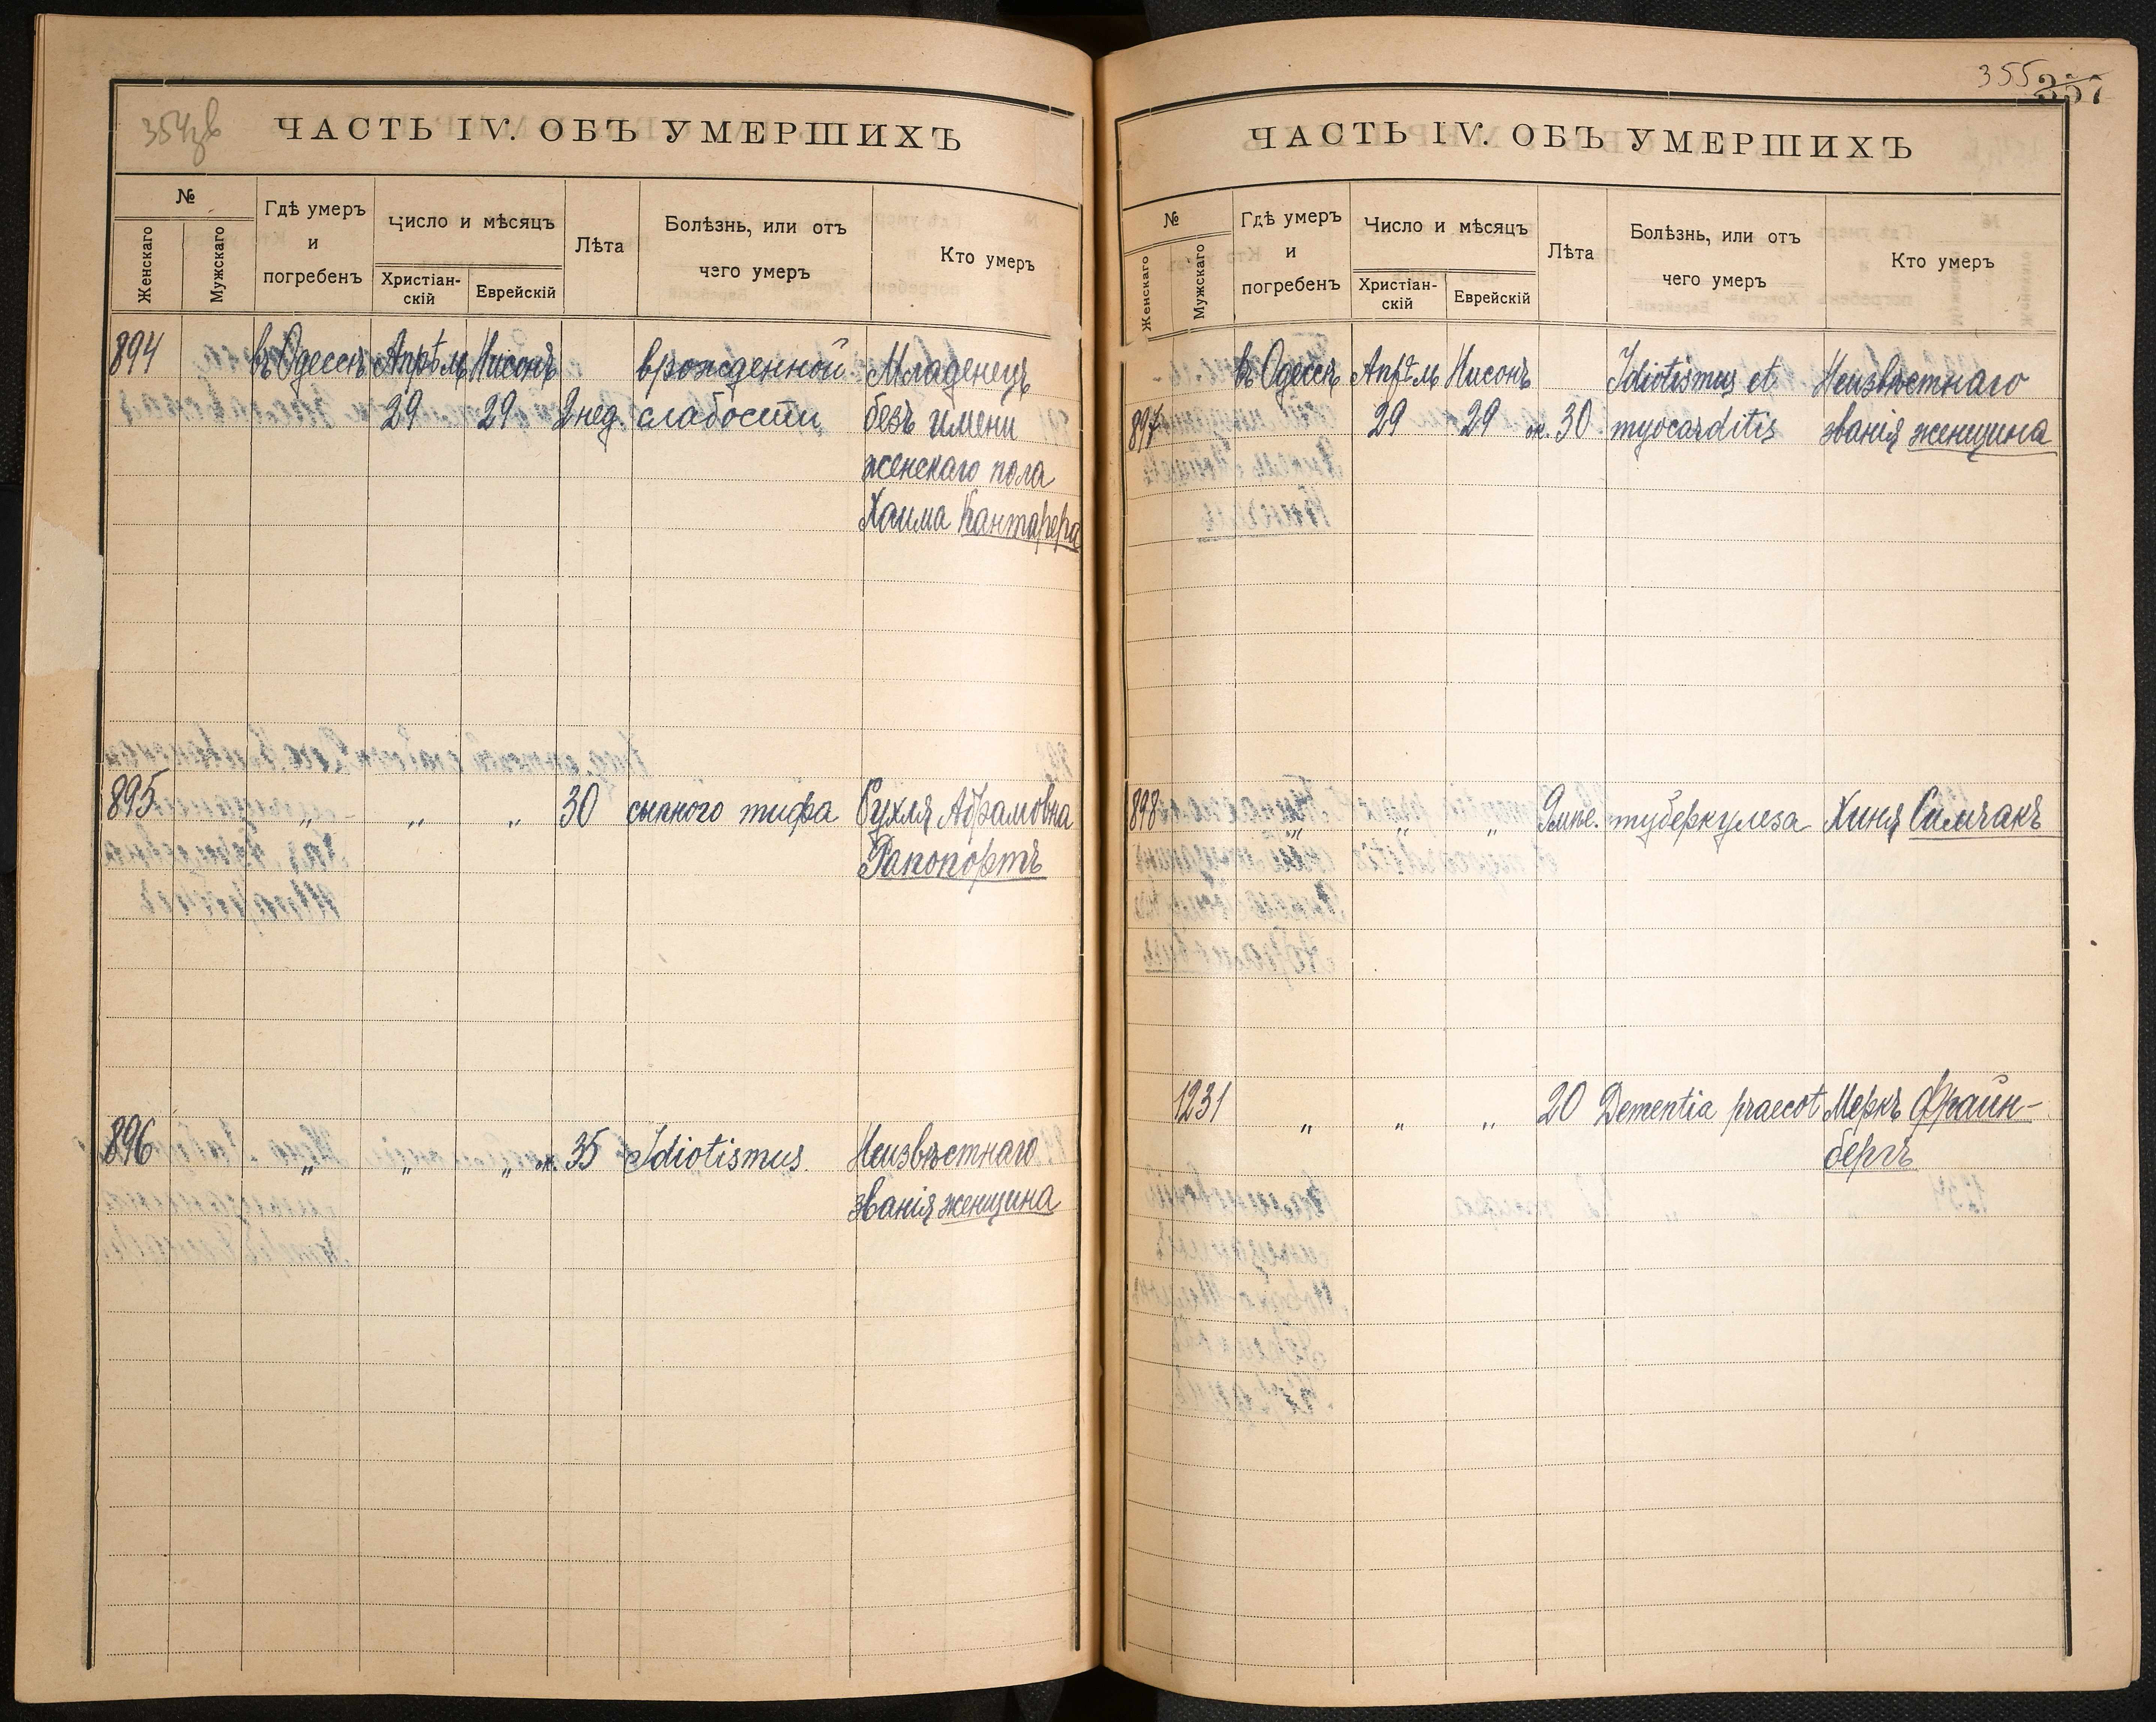 354 об
ЧАСТЬ IV. ОБЪ УМЕРШИХЪ
№
Женскаго
Мужскаго
Гдѣ умеръ
и
погребенъ
Число и мѣсяцъ
Христіан-
скій
Еврейскій
Лѣта
Болѣзнь, или отъ
чего умеръ
Кто умеръ
894 въ Одессѣ Апрѣль Нисонъ врожденной Младенецъ
29 29 2 нед. слабости безъ имени
женскаго пола
Хаима Кантарера
895 „ „ „ 30 сыпного тифа Рухля Абрамовна
Рапопортъ
896 „ „ „ ок. 35 Idiotismus. Неизвѣстнаго
званія женщина
355 357
ЧАСТЬ IV. ОБЪ УМЕРШИХЪ
№
Женскаго
Мужскаго
Гдѣ умеръ
и
погребенъ
Число и мѣсяцъ
Христіан-
скій
Еврейскій
Лѣта
Болѣзнь, или отъ
чего умеръ
Кто умеръ
въ Одессѣ Апрѣль Нисонъ Idiotismus et Неизвѣстнаго
897 29 29 ок. 30 myocarditis званія женщина
898 „ „ „ 9 туберкулеза Хиня Симчакъ
1231 „ „ „ 20 Dementia praecot Меркъ Фраин-
бергъ